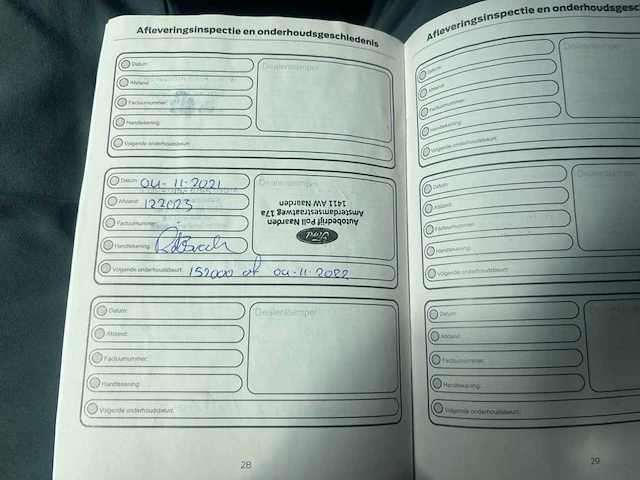 Afleveringsinspectie en onderhoudsgeschiedenis
Datum:
Afstand:
Factuurnummer:
Handtekening:
Volgende onderhoudsbeurt:
Dealerstempel
Datum: 04-11-2021
Afstand: 122023
Factuurnummer:
Handtekening:
Volgende onderhoudsbeurt: 152000 of 04-11-2022
Dealerstempel
Ford
Autobedrijf Poll Naarden
Amsterdamsestraatweg 17a
1411 AW Naarden
Datum:
Afstand:
Factuurnummer:
Handtekening:
Volgende onderhoudsbeurt:
Dealerstempel
28
Afleveringsinspectie en onderhoudsgesc
Datum:
Afstand:
Factuurnummer:
Handtekening:
Volgende onderhoudsbeurt:
Dealerste
Datum:
Afstand:
Factuurnummer:
Handtekening:
Volgende onderhoudsbeurt:
Dealerst
Datum:
Afstand:
Factuurnummer:
Handtekening:
Volgende onderhoudsbeurt:
Dealers
29